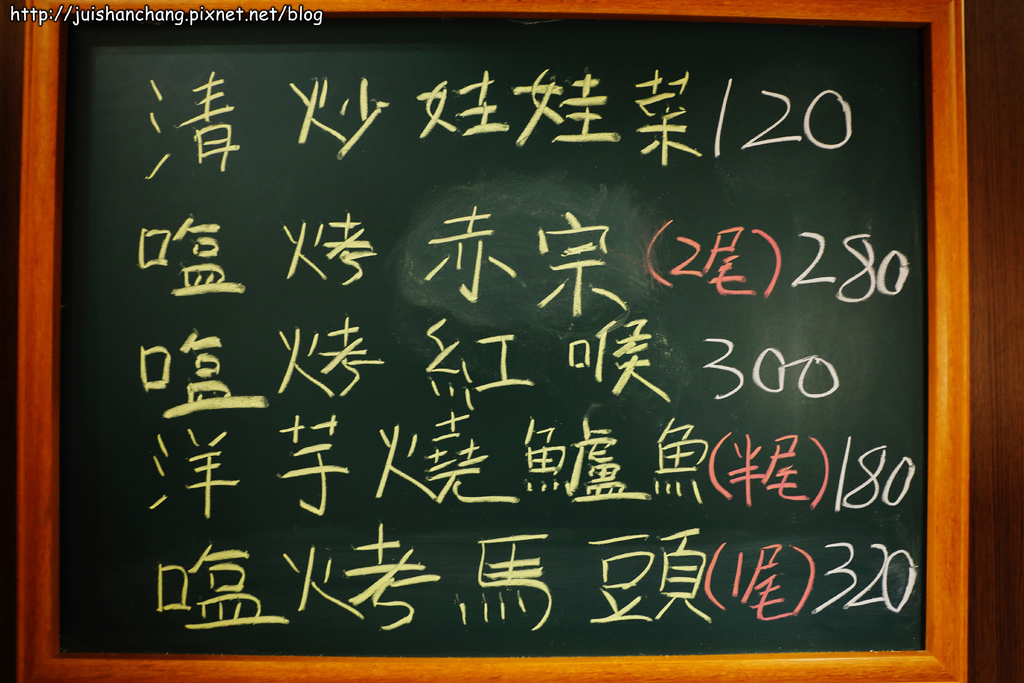 http://juishanchang.pixnet.net/blog
清炒娃娃菜120
塩烤赤宗(2尾)280
塩烤紅喉300
洋芋燒鱸魚(半尾)180
塩烤馬頭(1尾)320